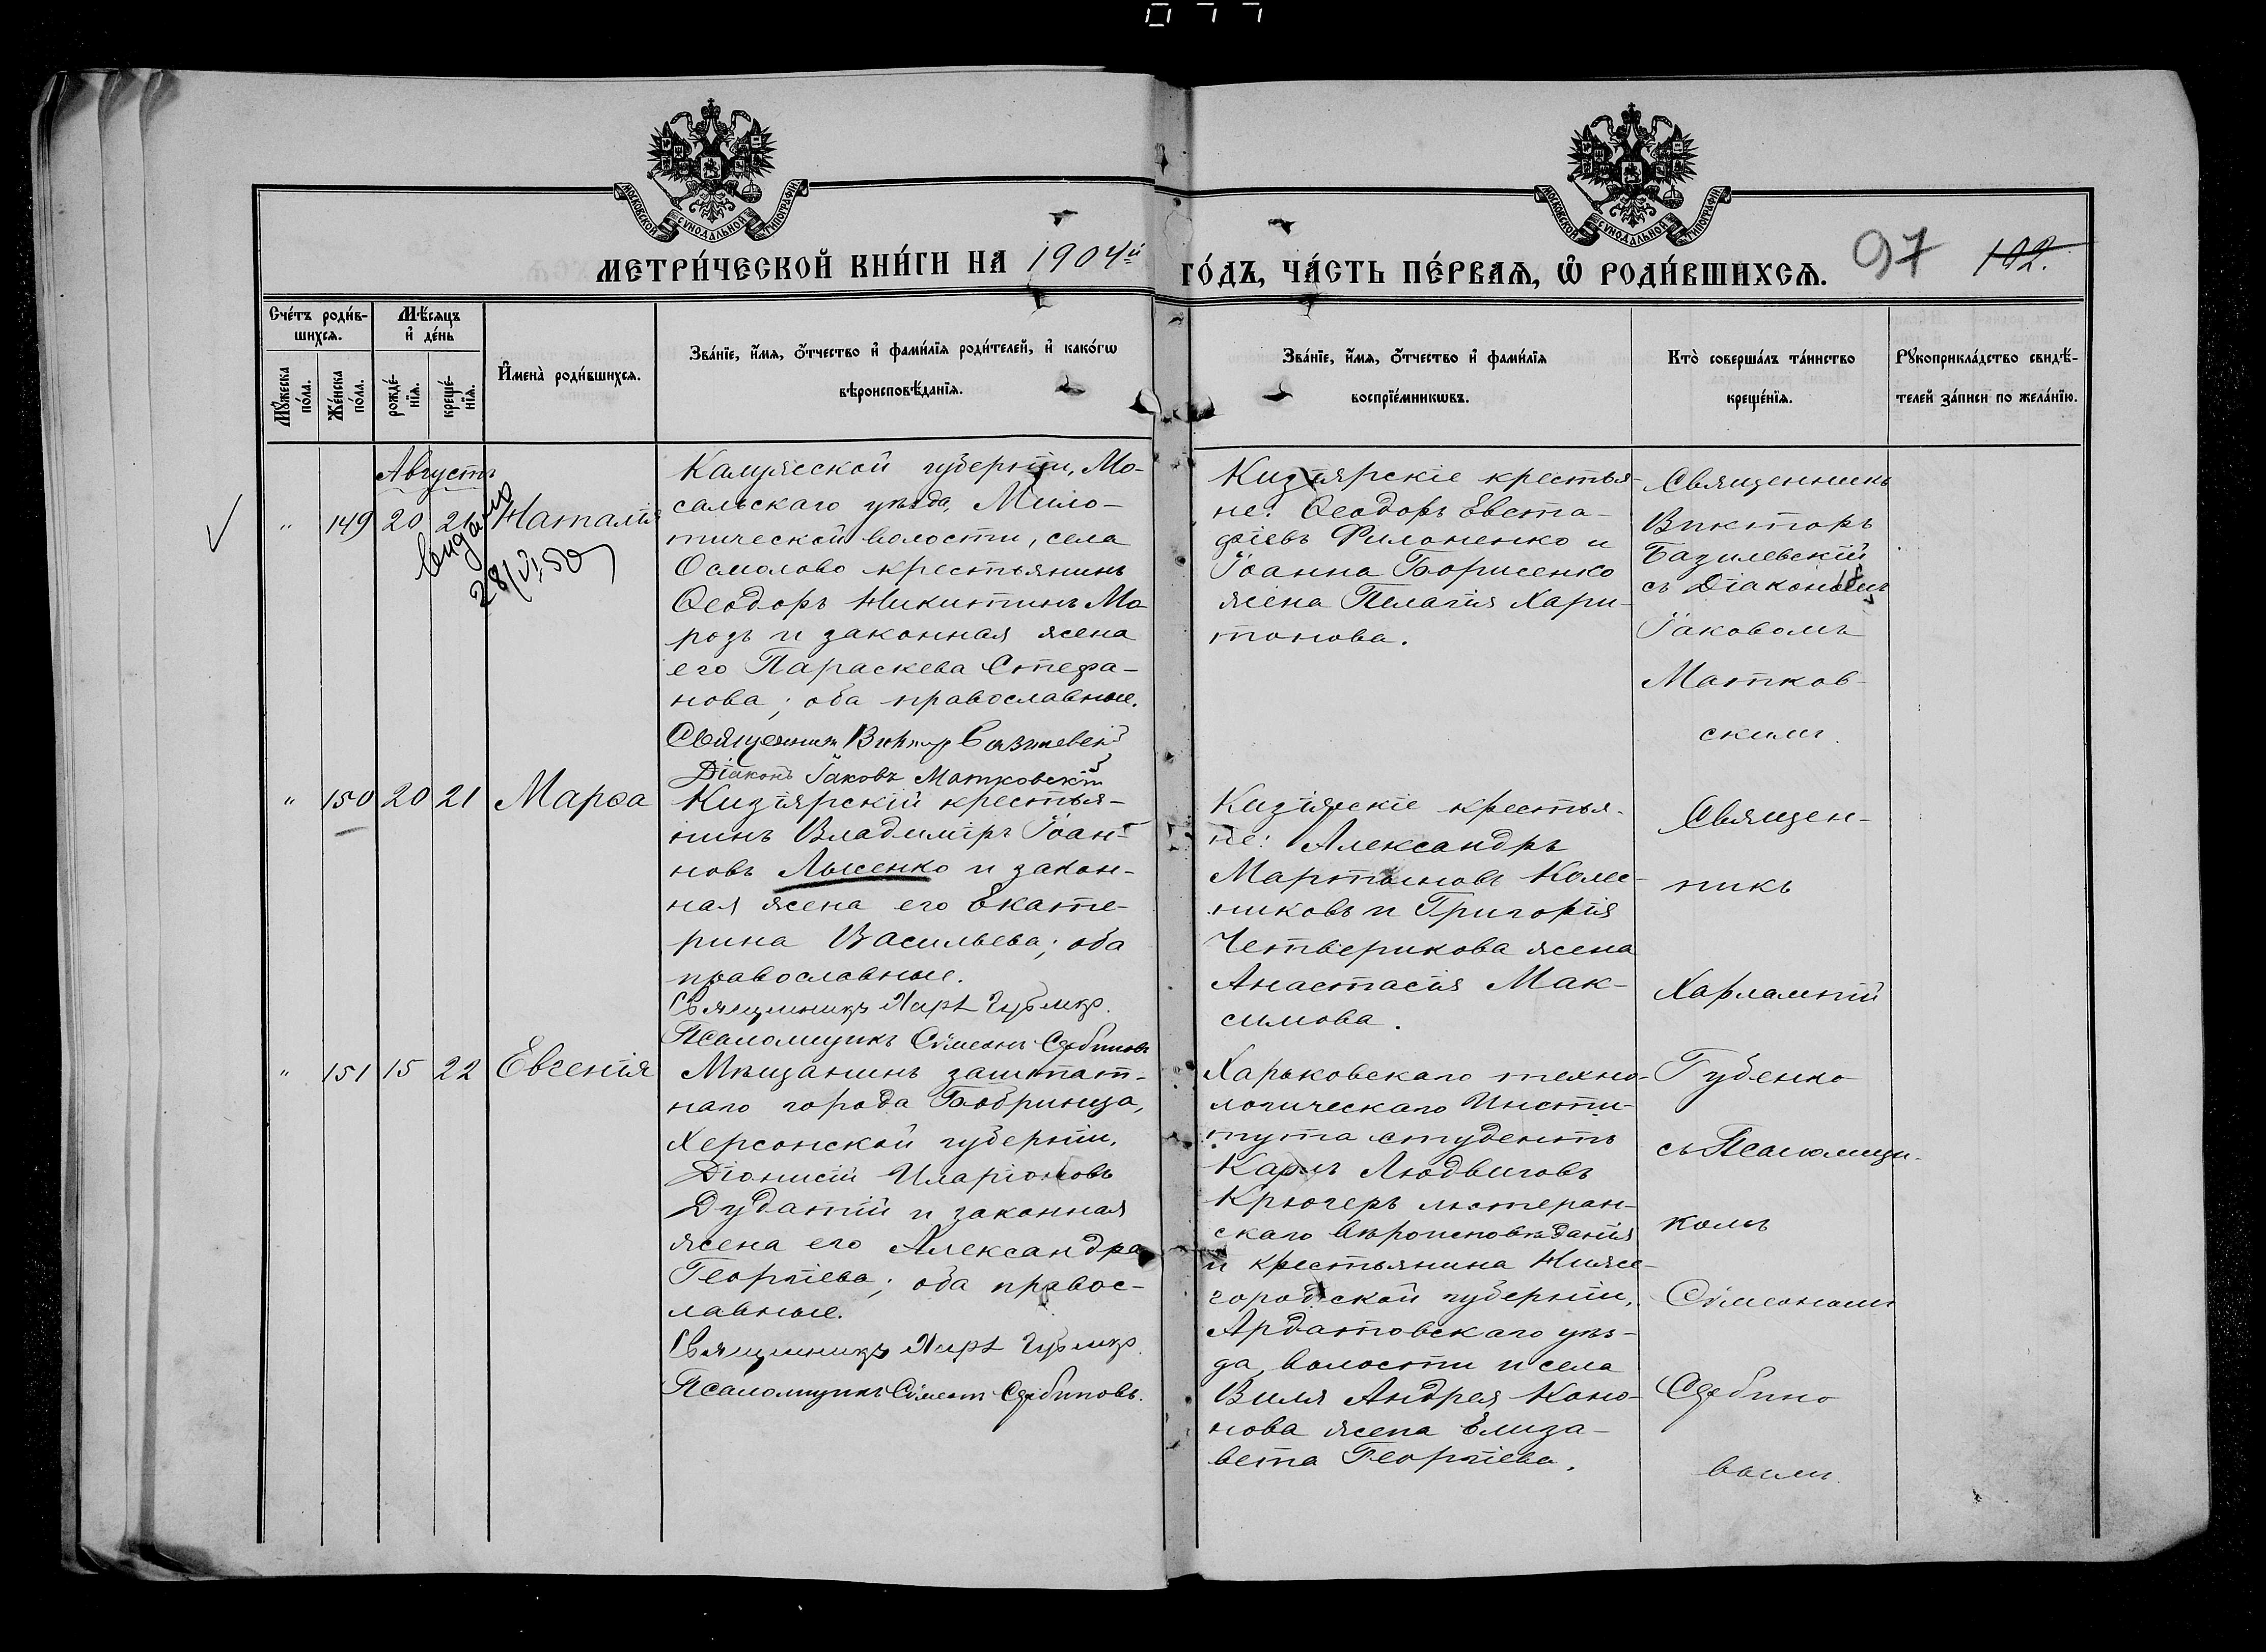 077
МОСКОВСКОЙ СУНОДАЛЬНОЙ ТИПОГРАФІИ
МОСКОВСКОЙ СУНОДАЛЬНОЙ ТИПОГРАФІИ
МЕТРИ́ЧЕСКОЙ КНИ́ГИ НА 1904й ГО́ДЪ, ЧА́СТЬ ПЕ́РВАѦ, Ѡ҆ РОДИ́ВШИХСѦ. 97 102.
Сче́тъ роди́в-
шихсѧ.
Мꙋ́жеска по́ла.
Же́нска по́ла.
Мѣ́сѧцъ
и҆ де́нь
рожде́-
нїѧ.
креще́-
нїѧ.
И҆мена̀ роди́вшихсѧ.
Зва́нїе, и҆́мѧ, ѻ҆́тчество и҆ фами́лїѧ роди́телей, и҆ како́гѡ
вѣроисповѣ́данїѧ.
Зва́нїе, и҆́мѧ, ѻ҆́тчество и҆ фами́лїѧ
воспрїе́мникѡвъ.
Кто̀ соверша́лъ та́инство
креще́нїѧ.
Рꙋкоприкла́дство свидѣ́-
телей за́писи по жела́нїю.
Августъ
" 149 20 21 Наталія
28/VI,50
Калужской губерніи, Мо-
сальскаго уѣзда, Мило-
тической волости, села
Осмолово крестьянинъ
Ѳеодоръ Никитинъ Мо-
розъ и законная жена
его Параскева Стефа-
нова; оба православные.
Священник Виктор Базилевскій
Діаконъ Іаковъ Матковскій
Кизіярскіе крестья-
не: Ѳеодоръ Евста-
фіевъ Филоненко и
Іоанна Борисенко
жена Пелагія Хари-
тонова.
Священникъ
Викторъ
Базилевскій
съ Діакономъ
Іаковомъ
Матков-
скимъ.
" 150 20 21 Марѳа
Кизіярскій крестья-
нинъ Владиміръ Іоан-
новъ Лысенко и закон-
ная жена его Екате-
рина Васильева; оба
православные.
Священникъ Харл. Губенко.
Псаломщикъ Сѵмеонъ Сербиновъ
Кизіярскіе крестья-
не: Александръ
Мартыновъ Колес-
никовъ и Григорія
Четверикова жена
Анастасія Мак-
симова.
Священ-
никъ
Харлампій
Губенко
съ Псаломщи-
комъ
Сѵмеономъ
Сербино
вымъ.
" 151 15 22 Евгенія
Мѣщанинъ заштат-
наго города Бобринца,
Херсонской губерніи,
Діонисій Иларіоновъ
Дудатій и законная
жена его Александра
Георгіева; оба правос-
лавные.
Священникъ Харл. Губенко.
Псаломщикъ Сѵмеонъ Сербиновъ.
Харьковскаго техно-
логическаго Инсти-
тута студентъ
Карлъ Людвиговъ
Крюгеръ лютеран-
скаго вѣроисповѣданія
и крестьянина Ниже-
городской губерніи,
Ардатовскаго уѣз-
да, волости и села
Виля Андрея Коно-
нова жена Елиза-
вета Георгіева.